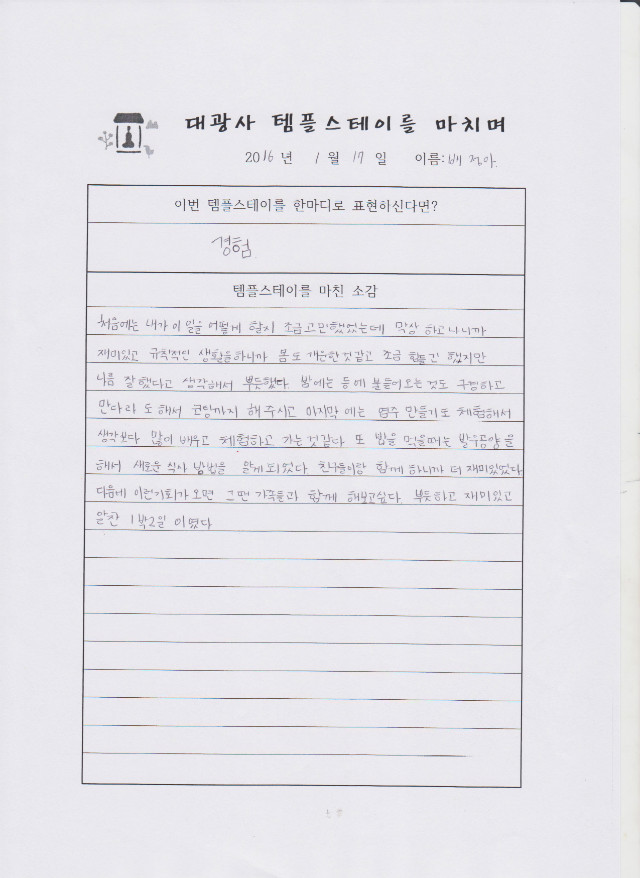 대광사 템플스테이를 마치며
2016년 1월 17일 이름: 배정아
이번 템플스테이를 한마디로 표현하신다면?
경험
템플스테이를 마친 소감
처음에는 내가 이 일을 어떻게 할지 조금 고민했었는데 막상 하고나니까
재미있고 규칙적인 생활을하니까 몸도 개운한것같고 조금 힘들긴 했지만
나름 잘했다고 생각해서 뿌듯했다. 밤에는 등에 불들어오는것도 구경하고
만다라도 해서 코팅까지 해주시고 마지막에는 염주 만들기도 체험해서
생각보다 많이 배우고 체험하고 가는것같다. 또 밥을 먹을때는 발우공양을
해서 새로운 식사 방법을 알게되었다. 친구들이랑 함께 하니까 더 재미있었다
다음에 이런기회가 오면 그땐 가족들과 함께 해보고싶다. 뿌듯하고 재미있고
알찬 1박2일 이였다